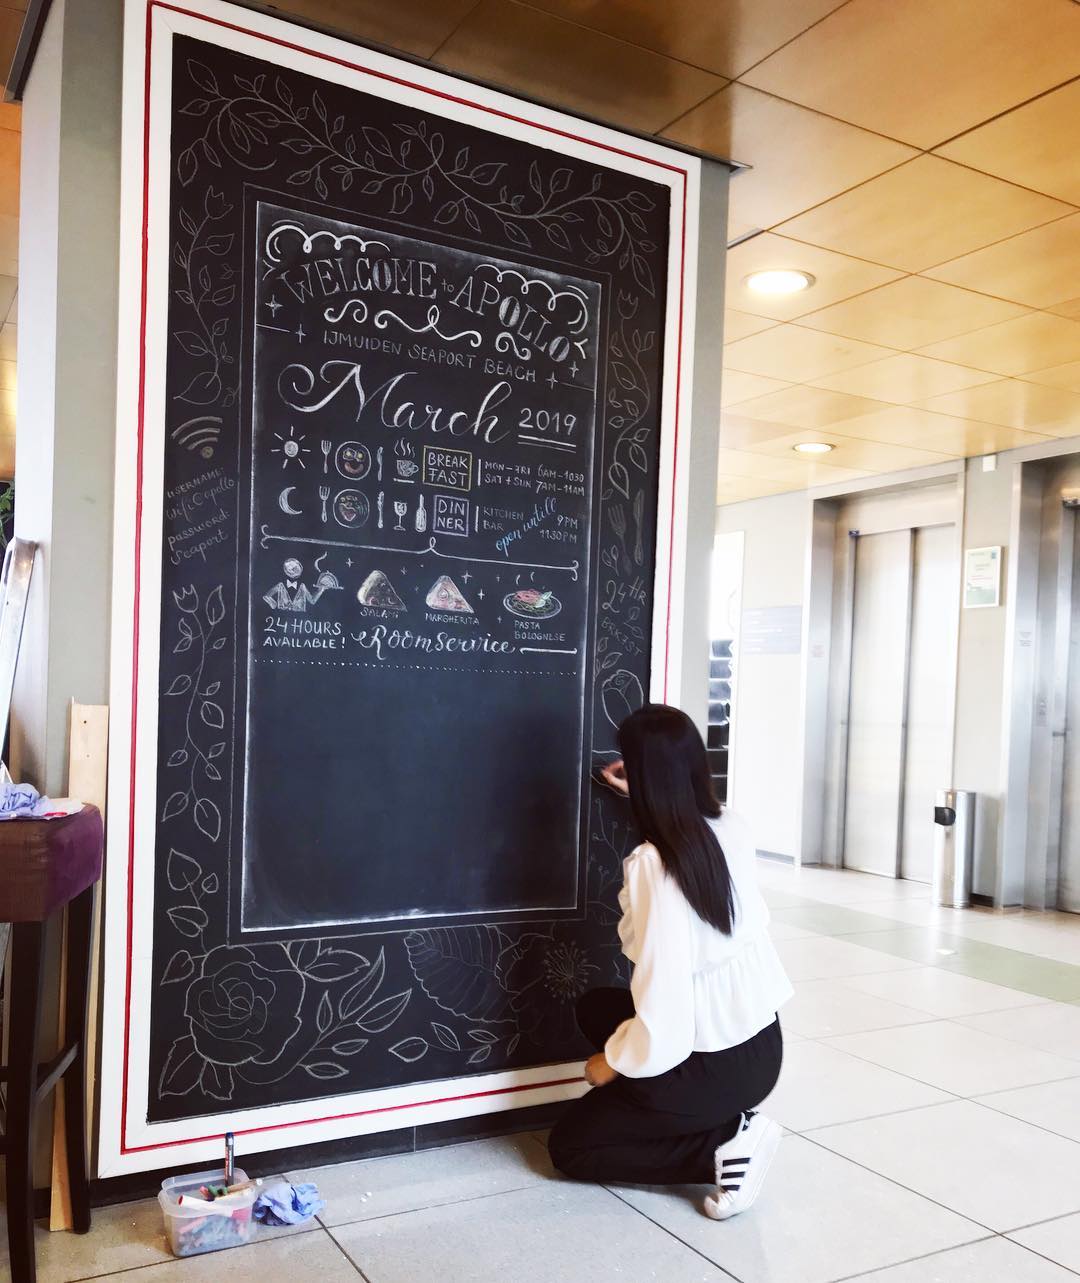 WELCOME to APOLLO
IJMUIDEN SEAPORT BEACH
March 2019
BREAK
FAST
MON-FRI 6AM-1030
SAT + SUN 7AM-11AM
DIN
NER
KITCHEN
BAR
open untill
9PM
11.30PM
SALAMI
MARGHERITA
PASTA
BOLOGNESE
24 HOURS
AVAILABLE!
RoomService
USERNAME:
WLCapollo
password:
Seaport
24 HR